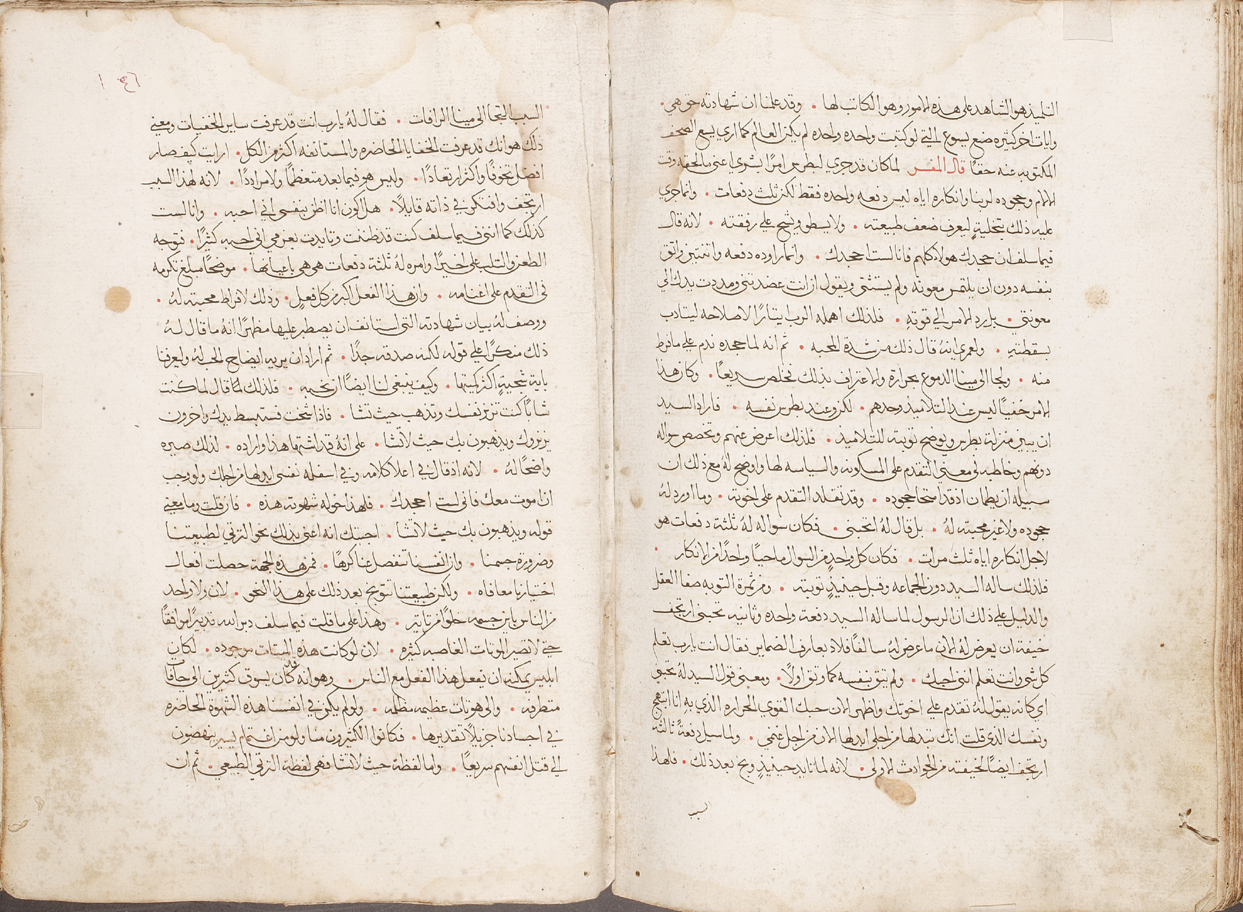 التلميذ هو الشاهد على هذه الامور وهو الكاتب لها • وقد علمنا ان شهادته حق هي •
وايات اخر كثيره صنع يسوع التي لو كتبت واحده واحده لم يكن العالم كما اري يسع الصحف
المكتوبه عنه حقًا قال المفسر لما كان قد جري لبطرس امرًا بشري اعني ما لحقه وقت
الالام وجحوده لربنا وانكاره اياه ليس دفعه واحده فقط لكن ثلث دفعات • وانما جري
عليه ذلك بتخلية ليعرف ضعف طبيعته • ولا يسطو ويشمخ على رفقته • لانه قال
فيما سلف ان جحدك هولا كلهم فانا لست اجحدك • وانما راوده دفعه واثنتين واثق
بنفسه دون ان يلتمس معونه ولم يستثني ويقول ان انت عضدتني ومددت يدك الي
معونتي • بل رد الامر الي قوته • فلذلك اهمله الرب ايثارًا لاصلاحه ليتادب
بسقطته • ولعمري انه قال ذلك من شدة المحبه • ثم انه لما جحده ندم على ما فرط
منه • ولجا الي مينا الدموع بحرارة والاعتراف بذلك فخلص سريعًا • وكان هذا
الامر خفيًا ليس عند التلاميذ وحدهم • لكن وعند بطرس نفسه • فاراد السيد
ان يبين منزلة بطرس ويوضح توبته للتلاميذ • فلذلك اعرض عنهم وتخصص سواله
دونهم وخاطبه في معني التقدم على المسكونه والسياسه لها واوضح له مع ذلك ان
سبيله ان يطمان اذ قد امتحا جحوده • وقد تقلد التقدم على اخوته • وما اورد له
جحوده ولا عير محبته له • بل قال له اتحبني • فكان سواله له ثلثة دفعات هو
لاجل انكاره اياه ثلث مرات • فكان كل واحد من السوال ماحيًا واحدًا من الانكار •
فلذلك ساله السيد دون الجماعه وقبل حينيذٍ توبته • ومن ثمرة التوبه صفا العقل
والدليل على ذلك ان الرسول لما ساله السيد دفعة واحده وثانيه تحبني ارتجف
خيفة ان يعرض له الان ما عرض له سالفًا فلاذ بعارف الضماير فقال انت يا رب تعلم
كل شي وانت تعلم انني احبك • ولم يثق بنفسه كما وثق اولًا • ومعني قول السيد له تحبني
اي كانه يقول له تقدم على اخوتك واظهر الان حبك القوي الحرارة الذي به انا ابتهج
ونفسك الذي قلت انك تبدلها من اجلي ابدلها الان من اجل غنمي • ولما سيل دفعةً ثالثة
ارتجف ايضًا لخيفته من الحوادث الاولي • لانه لما تايد حينيذٍ وبخ بعد ذلك • فلهذا
السبب
السبب التجا الي مينا الرافات • فقال له يا رب انت قد عرفت ساير الخفيات ومعني
ذلك هو انك قد عرفت الخفايا الحاضره والمستانفه اكثر من الكل • ارايت كيف صار
افضل تخوفًا واكثر ارتعادًا • وليس هو فيما بعد متعظمًا ولا مرادًا • لانه لهذا السبب
ارتجف وافتكر في ذاته قايلًا • هل اكون انا اظن بنفسي اني احبه • وانا لست
كذلك كما انني فيما سلف كنت قد ظننت وتايدت بعزمي اني احبه كثيرًا • فتوجه
الطعن والثلب على اخيرًا وامره له ثلثة دفعات هي هي باعيانها • موضحًا مبلغ تكرمه
في التقدم على اغنامه • وان هذا الفعل اكبر من كل فعل • وذلك لافراط محبته له •
ووصف له بيان شهادته التي استانف ان يصطبر عليها مظهرًا انه ما قال له
ذلك منكرًا على قوله لكنه صدقه جدًا • ثم اراد ان يريه ايضاح المحبه له وليعرفنا
باية سجية اكثر كميتها • وكيف ينبغي لنا ايضًا ان نحبه • فلذلك لما قال لما كنت
شابًا كنت تزنر نفسك وتذهب حيث تشا • فاذا شخت فستبسط يدك واخرون
يزنروك ويذهبون بك حيث لا تشا • على انه قد اشتها هذا واراده • لذلك صيره
واضحًا له • لانه اذ قال في اعلا كلامه وفي اسفله نفسي ابدلها من اجلك ولو وجب
ان اموت معك فاني لست اجحدك • فلهذا خوله شهوته هذه • فان قلت وما معني
قوله ويذهبون بك حيث لا تشا • اجبتك انه اعني بذلك نحو الترثي لطبيعتنا
وضرورة جسمنا • وان انفسنا تنفصل عنا كرهًا • فمن هذه الجهة حصلت افعال
اختيارنا معافاه • ولكن طبيعتنا توبخ بعد ذلك على هذا النحو • لان ولا واحد
من الناس باين جسمه خلوًا من تاثير • وهذا على ما قلت فيما سلف دبر الله تدبيرًا موافقًا
حتى لا تصير الموتات الغاصبه كثيره • لان لو كانت هذه الميتات موجوده • لكان
ابليس يمكنه ان يفعل هذا الفعل مع الناس • وهو انه كان يسوق كثيرين الي حافات
متطرفه • والي هوتات عظيمه مظلمه • ولو لم يكن في انفسنا هذه الشهوة الحاضره
في اجسادنا جزيلًا تقديرها • فكانوا الكثيرون منا ولو من اغتمام يسير ينهضون
الي قتل انفسهم سريعًا • واما لفظة حيث لا تشا فهي لفظة الترثي الطبيعي • ثم ان